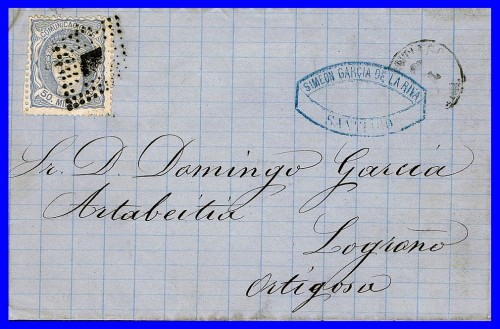 COMUNICACIONES
50 MIL
SIMEON GARCIA DE LA RIVA
SANTIAGO
Sr. D. Domingo García
Artabeitia
Logroño
Ortigosa